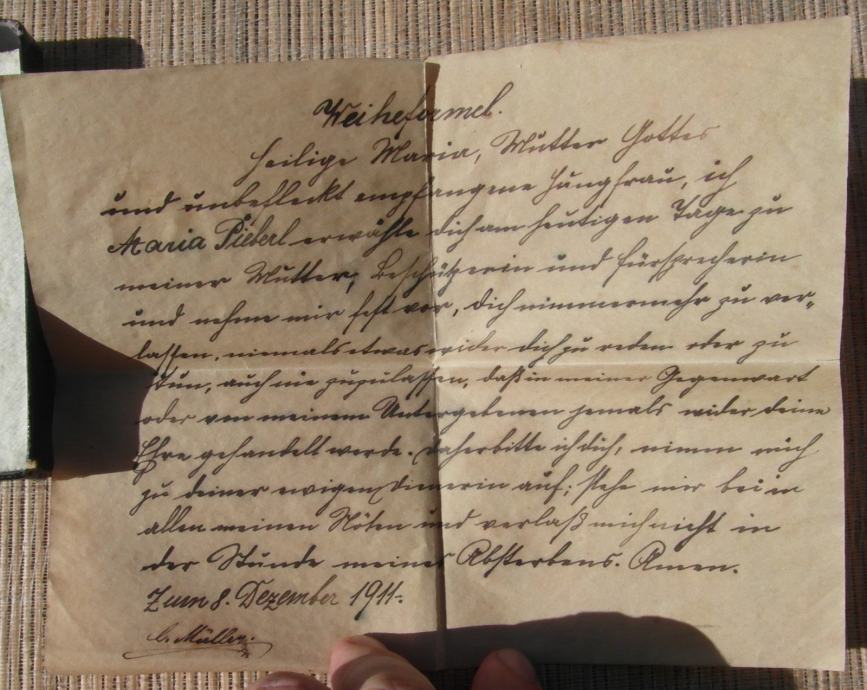 Weiheformel.
Heilige Maria, Mutter Gottes
und unbefleckt empfangene Jungfrau, ich
Maria Pieberl erwähle dich am heutigen Tage zu
meiner Mutter, Beschützerin und Fürsprecherin
und nehme mir fest vor, dich nimmermehr zu ver-
lassen, niemals etwas wider dich zu reden oder zu
tun, auch nie zuzulassen, daß in meiner Gegenwart
oder von meinem Untergebenen jemals wider deine
Ehre gehandelt werde. Daher bitte ich dich, nimm mich
zu deiner ewigen Dienerin auf; stehe mir bei in
allen meinen Nöten und verlaß mich nicht in
der Stunde meines Absterbens. Amen.
Zum 8. Dezember 1911.
Müller.